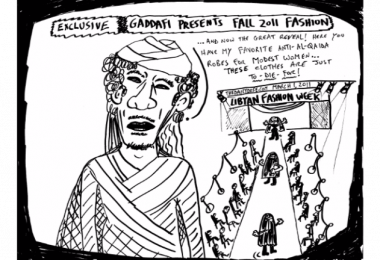 EXCLUSIVE GADDAFI PRESENTS FALL 2011 FASHION
...AND NOW THE GREAT REVEAL! HERE YOU
HAVE MY FAVORITE ANTI-AL-QAIDA
ROBES FOR MODEST WOMEN...
THESE CLOTHES ARE JUST
TO-DIE-FOR!
MARCH 1, 2011
LIBYAN FASHION WEEK